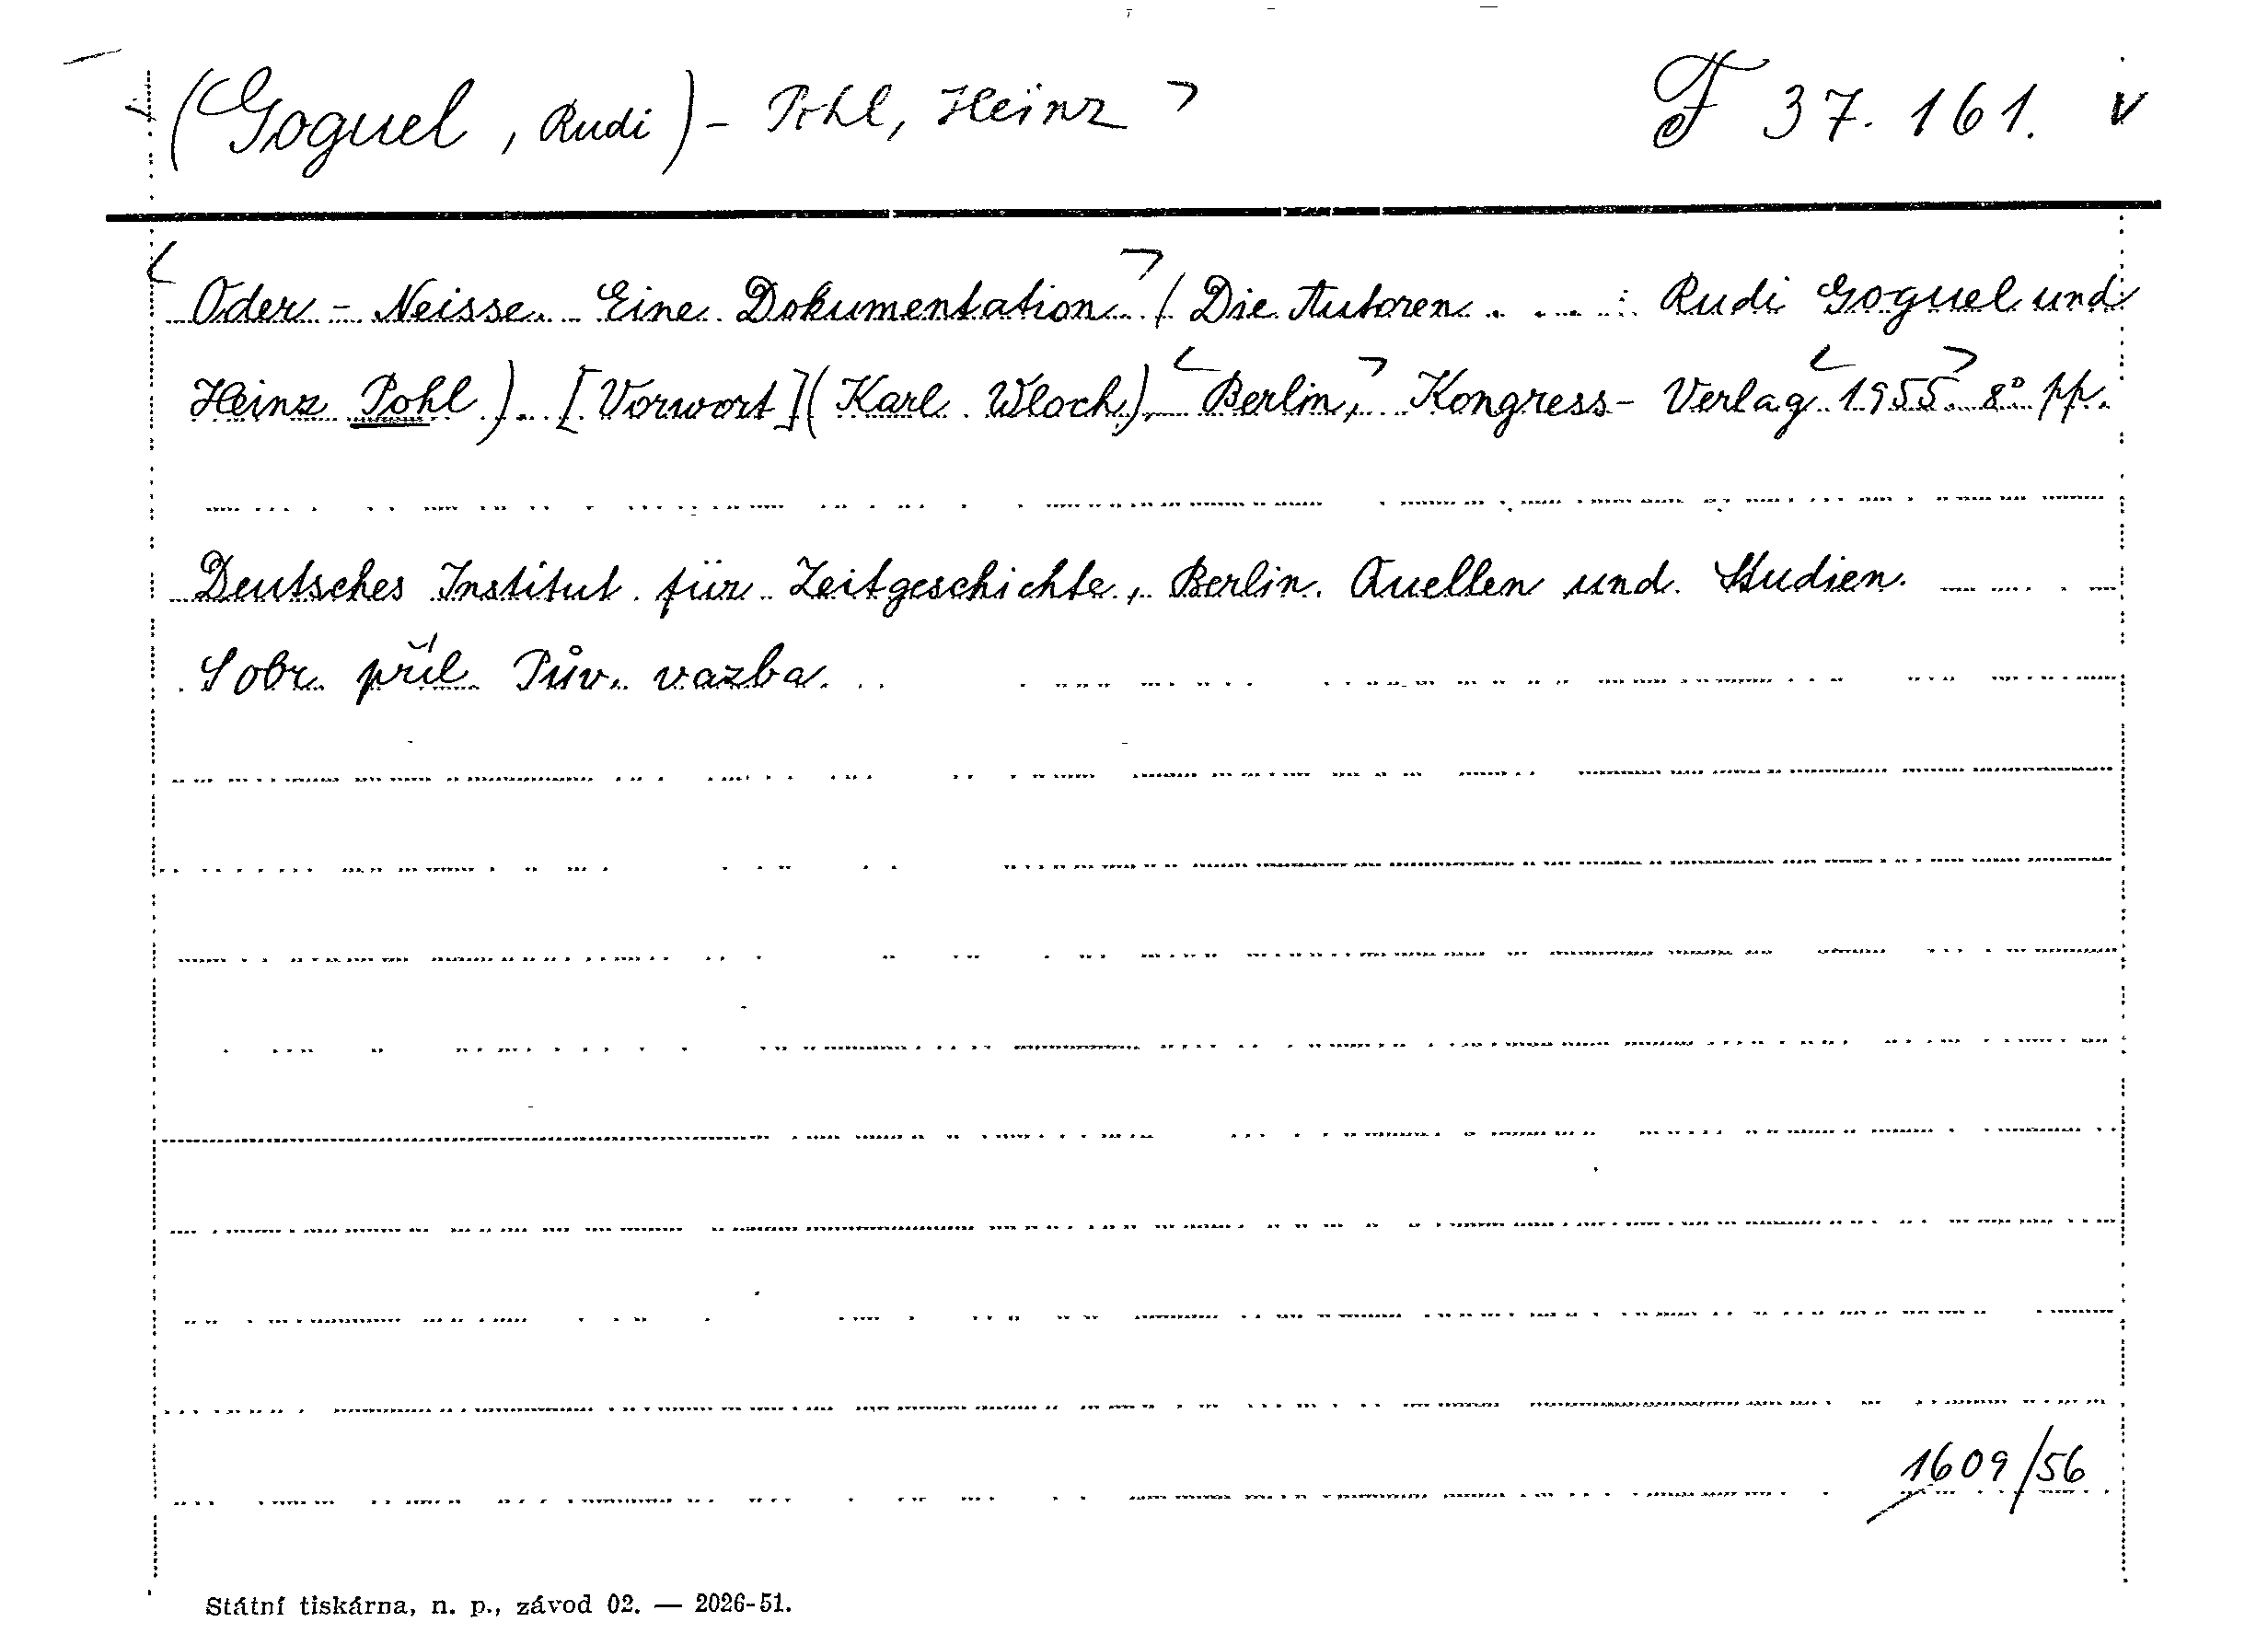 (Goguel, Rudi) - Pohl, Heinz > F 37.161. v
< Oder - Neisse. Eine Dokumentation > (Die Autoren . . . : Rudi Goguel und
Heinz Pohl). [Vorwort] (Karl Wloch). < Berlin, > Kongress - Verlag < 1955. > 8° pp.
Deutsches Institut für Zeitgeschichte, Berlin. Quellen und Studien.
S obr. příl. Pův. vazba.
1609/56
Státní tiskárna, n. p., závod 02. — 2026-51.